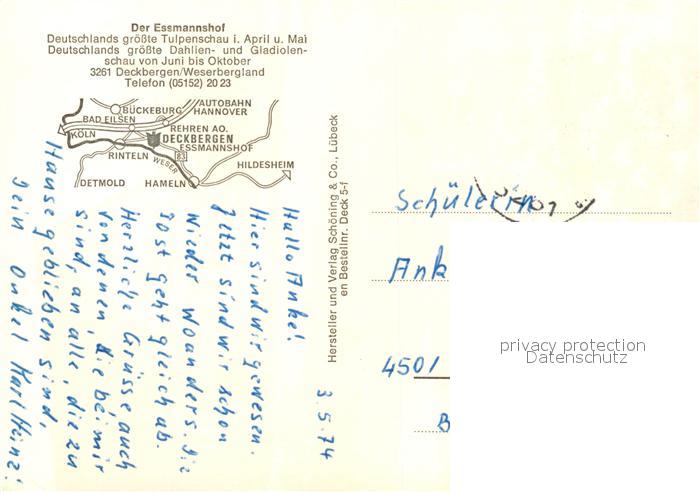 Der Essmannshof
Deutschlands größte Tulpenschau i. April u. Mai
Deutschlands größte Dahlien- und Gladiolen-
schau von Juni bis Oktober
3261 Deckbergen/Weserbergland
Telefon (05152) 20 23
AUTOBAHN
HANNOVER
BÜCKEBURG
BAD EILSEN
KÖLN
REHREN AO.
DECKBERGEN
ESSMANNSHOF
RINTELN
WESER
83
HILDESHEIM
DETMOLD
HAMELN
Hersteller und Verlag Schöning & Co., Lübeck
en Bestellnr. Deck 5-f
3.5.74
Hallo Anke!
Hier sind wir gewesen.
Jetzt sind wir schon
wieder woanders. Die
Post geht gleich ab.
Herzliche Grüsse auch
von denen, die bei mir
sind, an alle, die zu
Hause geblieben sind,
Dein Onkel Karl Heinz!
Schülerin
Ank
4501
B
privacy protection
Datenschutz